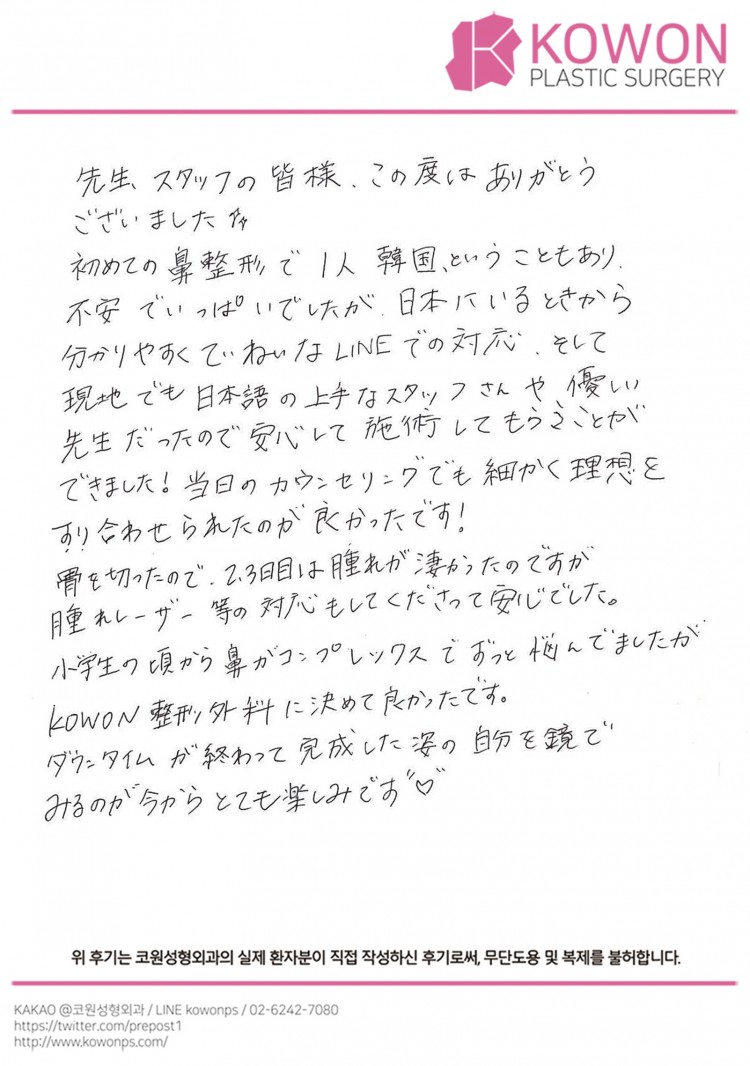 KOWON
PLASTIC SURGERY
先生、スタッフの皆様、この度はありがとう
ございました
初めての鼻整形で1人韓国、ということもあり、
不安でいっぱいでしたが、日本にいるときから
分かりやすくていねいなLINEでの対応、そして
現地でも日本語の上手なスタッフさんや、優しい
先生だったので安心して施術してもらうことが
できました!当日のカウンセリングでも細かく理想を
すり合わせられたのが良かったです!
骨を切ったので、2、3日目は腫れが凄かったのですが
腫れレーザー等の対応もしてくださって安心でした。
小学生の頃から鼻がコンプレックスでずっと悩んでましたが
KOWON整形外科に決めて良かったです。
ダウンタイムが終わって完成した姿の自分を鏡で
みるのが今からとても楽しみです♡
위 후기는 코원성형외과의 실제 환자분이 직접 작성하신 후기로써, 무단도용 및 복제를 불허합니다.
KAKAO @코원성형외과 / LINE kowonps / 02-6242-7080
https://twitter.com/prepost1
http://www.kowonps.com/